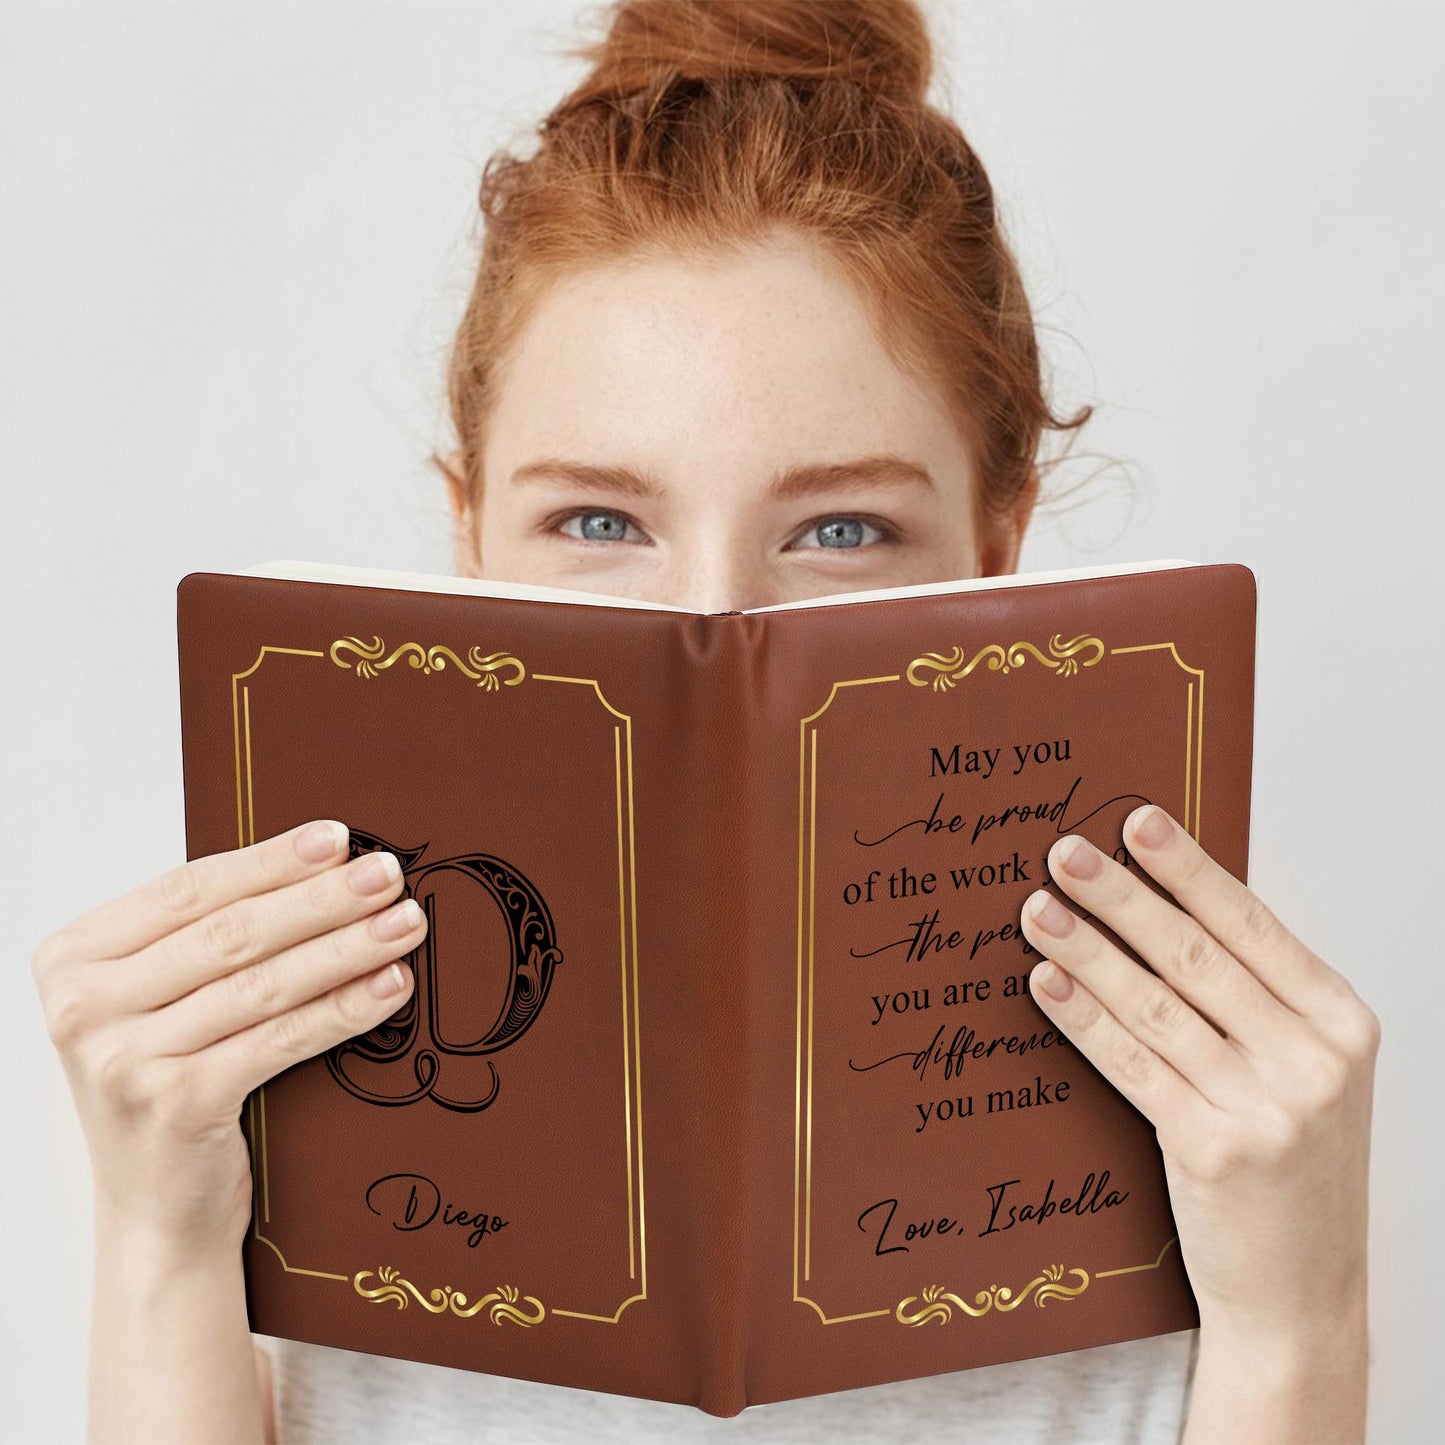 D
Diego
May you
be proud
of the work
the
you are
difference
you make
Love, Isabella